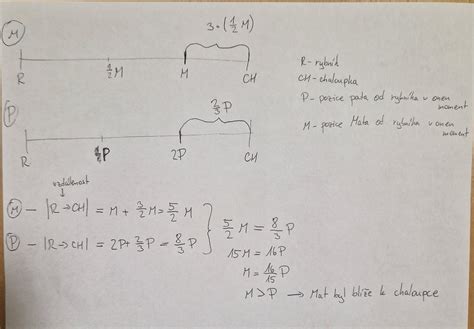 M
3·(½M)
R ½M M CH
R - rybník
CH - chaloupka
P - pozice pata od rybníka v onen moment
M - pozice Mata od rybníka v onen moment
P
⅔P
R ½P 2P CH
vzdálenost
M - |R→CH| = M + 3/2 M = 5/2 M
P - |R→CH| = 2P + 2/3 P = 8/3 P
5/2 M = 8/3 P
15M = 16P
M = 16/15 P
M > P → Mat byl blíže k chaloupce